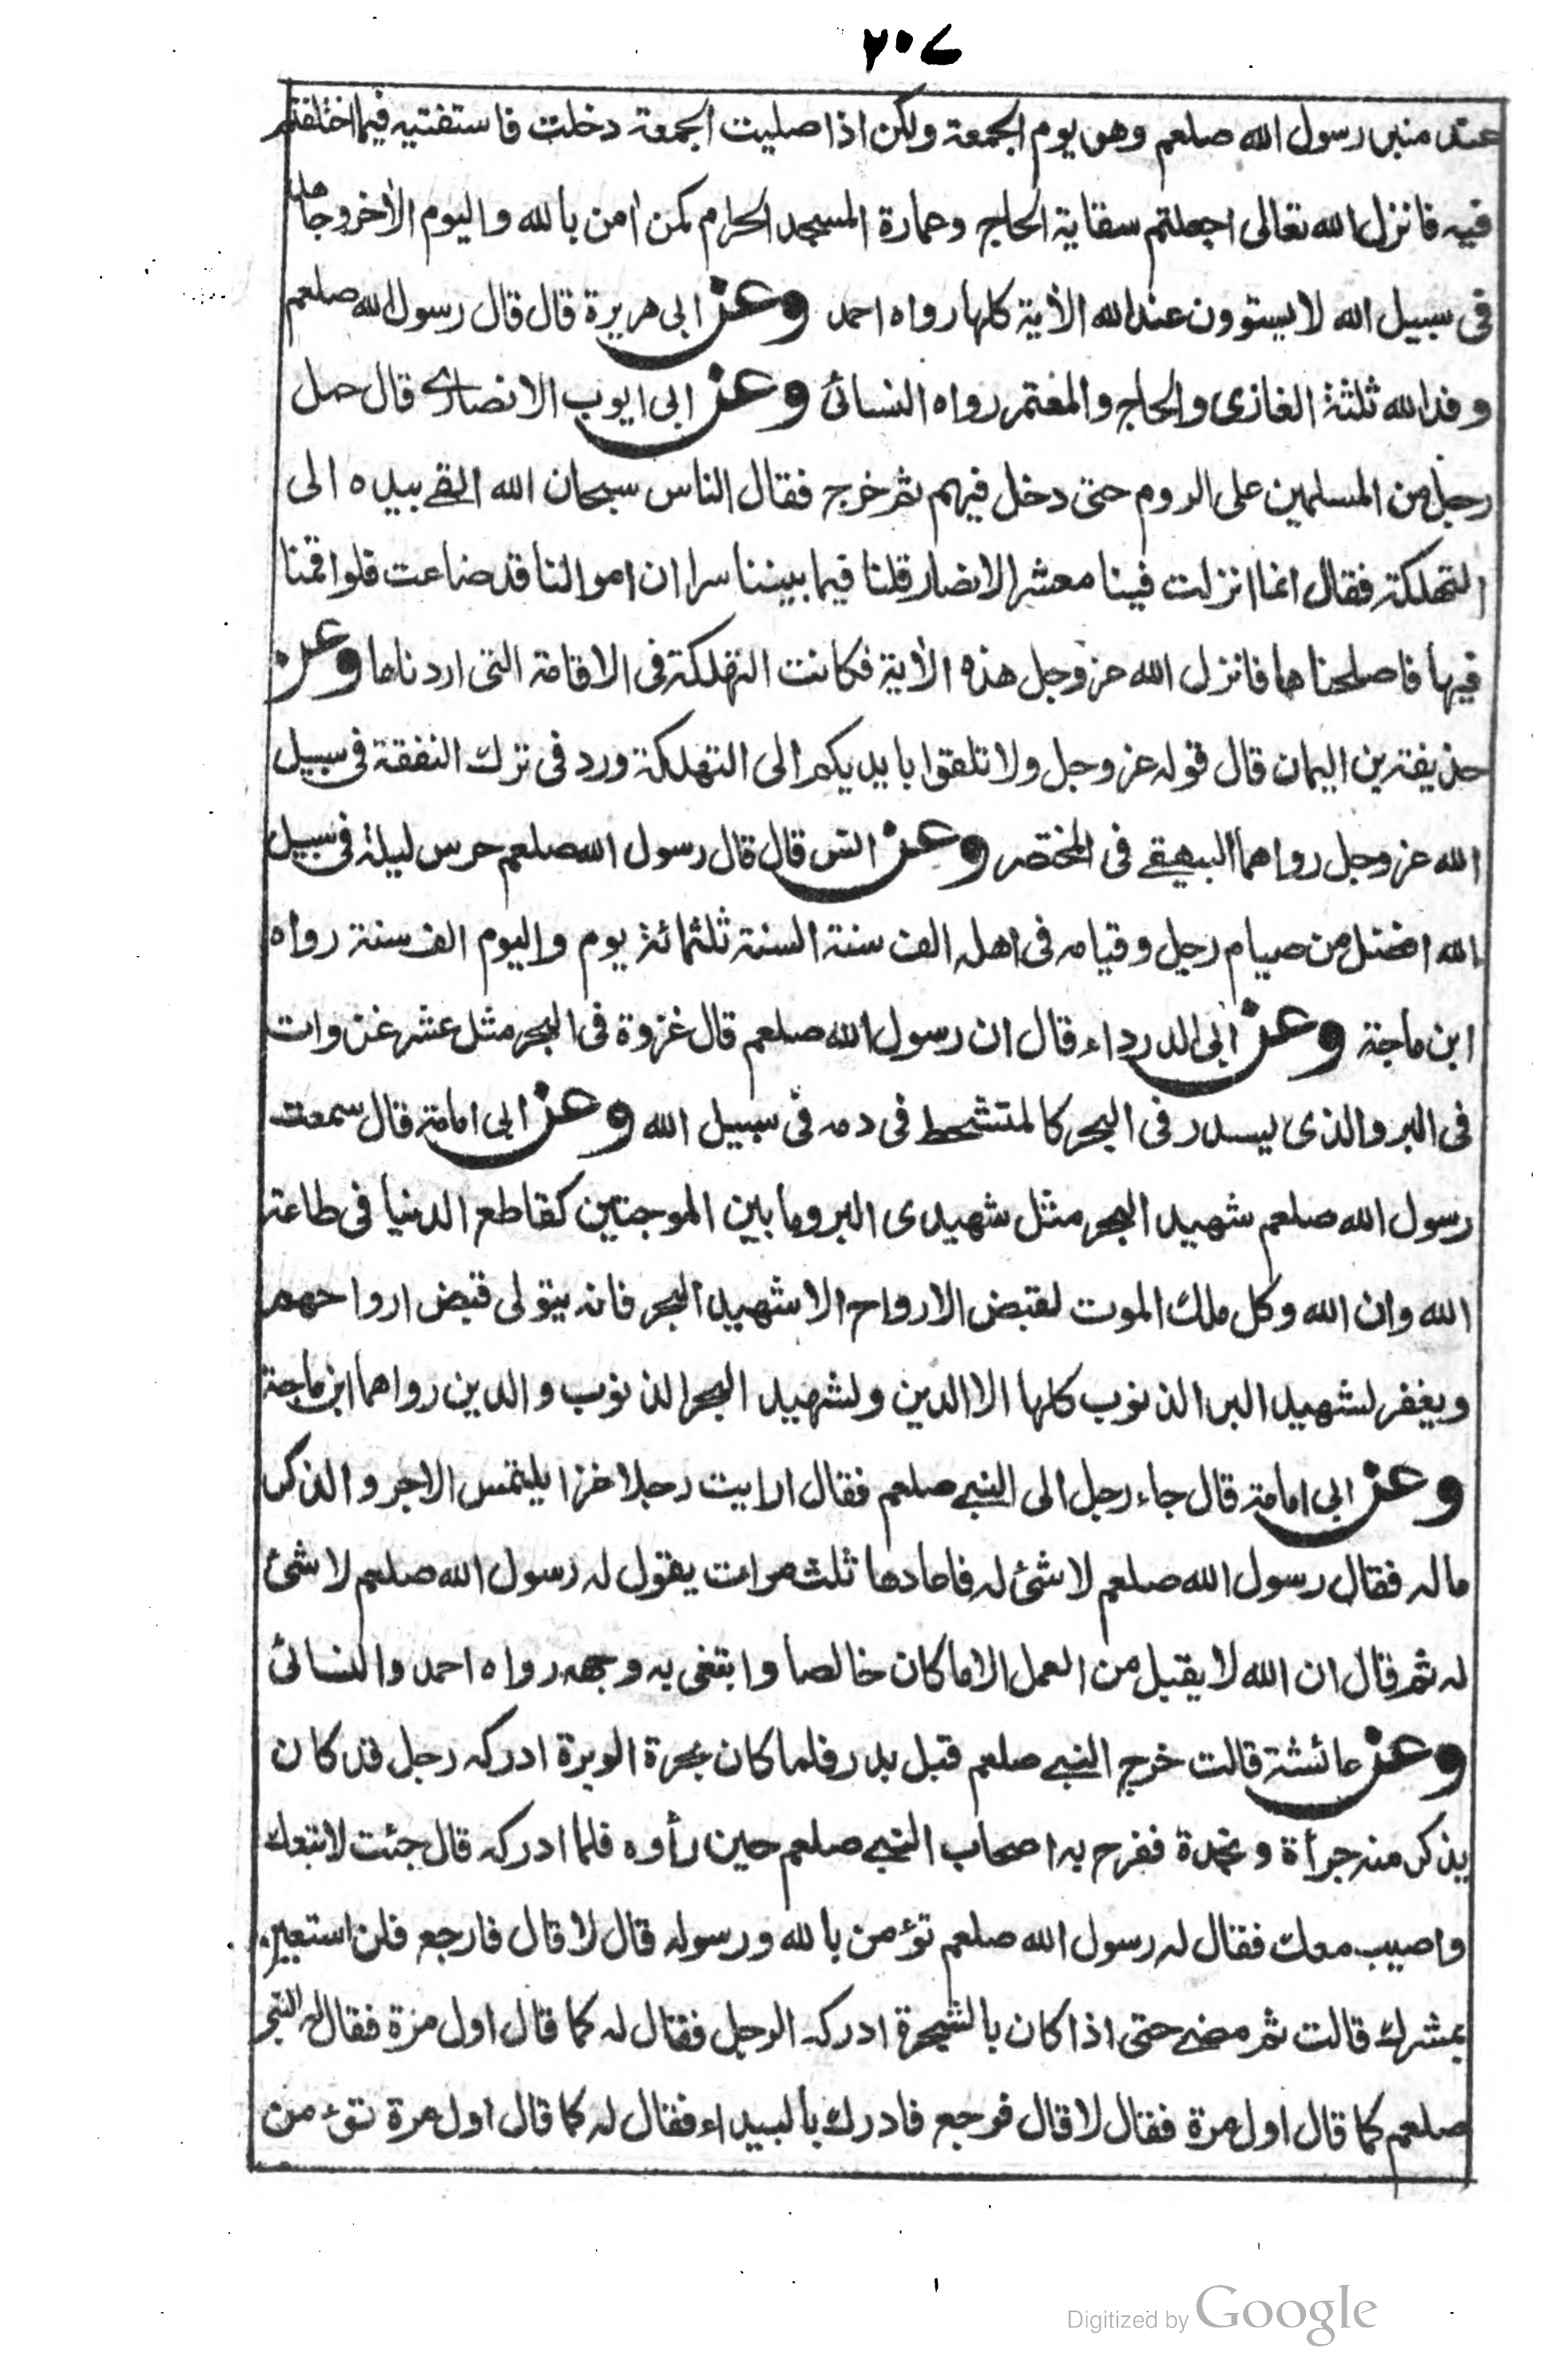 ٢٠٧
عند منبر رسول الله صلعم وهو يوم الجمعة ولكن اذا صليت الجمعة دخلت فاستفتيه فيما اختلفتم
فيه فانزل الله تعالى اجعلتم سقاية الحاج وعمارة المسجد الحرام كمن اٰمن بالله واليوم الاٰخر وجاهد
فى سبيل الله لا يستوون عند الله الاٰية كلها رواه احمد وعن ابى هريرة قال قال رسول الله صلعم
وفد الله ثلثة الغازى والحاج والمعتمر رواه النسائى وعن ابى ايوب الانصارى قال حمل
رجل من المسلمين على الروم حتى دخل فيهم ثم خرج فقال الناس سبحان الله القى بيده الى
التهلكة فقال انما انزلت فينا معشر الانصار قلنا فيما بيننا سرا ان اموالنا قد ضاعت فلو اقمنا
فيها فاصلحناها فانزل الله عز وجل هذه الاٰية فكانت التهلكة فى الاقامة التى اردناها وعن
حذيفة بن اليمان قال قوله عز وجل ولا تلقوا بايديكم الى التهلكة ورد فى ترك النفقة فى سبيل
الله عز وجل رواهما البيهقى فى المختصر وعن انس قال قال رسول الله صلعم حرس ليلة فى سبيل
الله افضل من صيام رجل وقيامه فى اهله الف سنة السنة ثلثمائة يوم واليوم الف سنة رواه
ابن ماجة وعن ابى الدرداء قال ان رسول الله صلعم قال غزوة فى البحر مثل عشر غزوات
فى البر والذى يسدر فى البحر كالمتشحط فى دمه فى سبيل الله وعن ابى امامة قال سمعت
رسول الله صلعم شهيد البحر مثل شهيدى البر وما بين الموجتين كقاطع الدنيا فى طاعة
الله وان الله وكل ملك الموت لقبض الارواح الا شهيد البحر فانه يتولى قبض ارواحهم
ويغفر لشهيد البر الذنوب كلها الا الدين ولشهيد البحر الذنوب والدين رواهما ابن ماجة
وعن ابى امامة قال جاء رجل الى النبى صلعم فقال ارايت رجلا غزا يلتمس الاجر والذكر
ماله فقال رسول الله صلعم لا شئ له فاعادها ثلث مرات يقول له رسول الله صلعم لا شئ
له ثم قال ان الله لا يقبل من العمل الا ما كان خالصا وابتغى به وجهه رواه احمد والنسائى
وعن عائشة قالت خرج النبى صلعم قبل بدر فلما كان بحرة الوبرة ادركه رجل قد كان
يذكر منه جرأة ونجدة ففرح به اصحاب النبى صلعم حين رأوه فلما ادركه قال جئت لاتبعك
واصيب معك فقال له رسول الله صلعم تؤمن بالله ورسوله قال لا قال فارجع فلن استعين
بمشرك قالت ثم مضى حتى اذا كان بالشجرة ادركه الرجل فقال له كما قال اول مرة فقال له النبى
صلعم كما قال اول مرة فقال لا قال فرجع فادرك بالبيداء فقال له كما قال اول مرة تؤمن
Digitized by Google